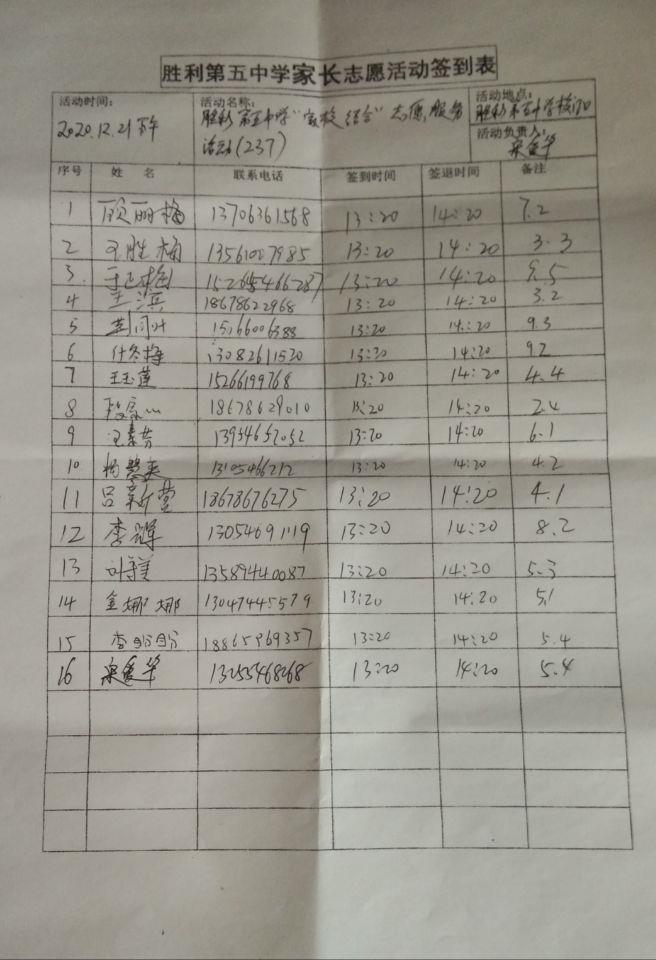 胜利第五中学家长志愿活动签到表
活动时间: 活动名称: 活动地点:
2020.12.21下午 胜利第五中学"家校结合"志愿服务 胜利第五中学校门口
活动(237) 活动负责人:
序号 姓 名 联系电话 签到时间 签退时间 备注
1 顾丽梅 13706361568 13:20 14:20 7.2
2 王胜梅 13561007985 13:20 14:20 3.3
3 15265466287 13:20 14:20 5.5
4 王滨 18678622968 13:20 14:20 3.2
5 15166006388 13:20 14:20 9.3
6 什冬梅 13082611520 13:20 14:20 9.2
7 王玉莲 15266199768 13:20 14:20 4.4
8 18678629010 13:20 14:20 2.4
9 汪素芳 13954652052 13:20 14:20 6.1
10 13105466212 13:20 14:20 4.2
11 吕新莹 18678676275 13:20 14:20 4.1
12 李辉 13054691119 13:20 14:20 8.2
13 13589440087 13:20 14:20 5.3
14 金娜娜 13047445579 13:20 14:20 5.1
15 李盼盼 18865969357 13:20 14:20 5.4
16 13255468268 13:20 14:20 5.4